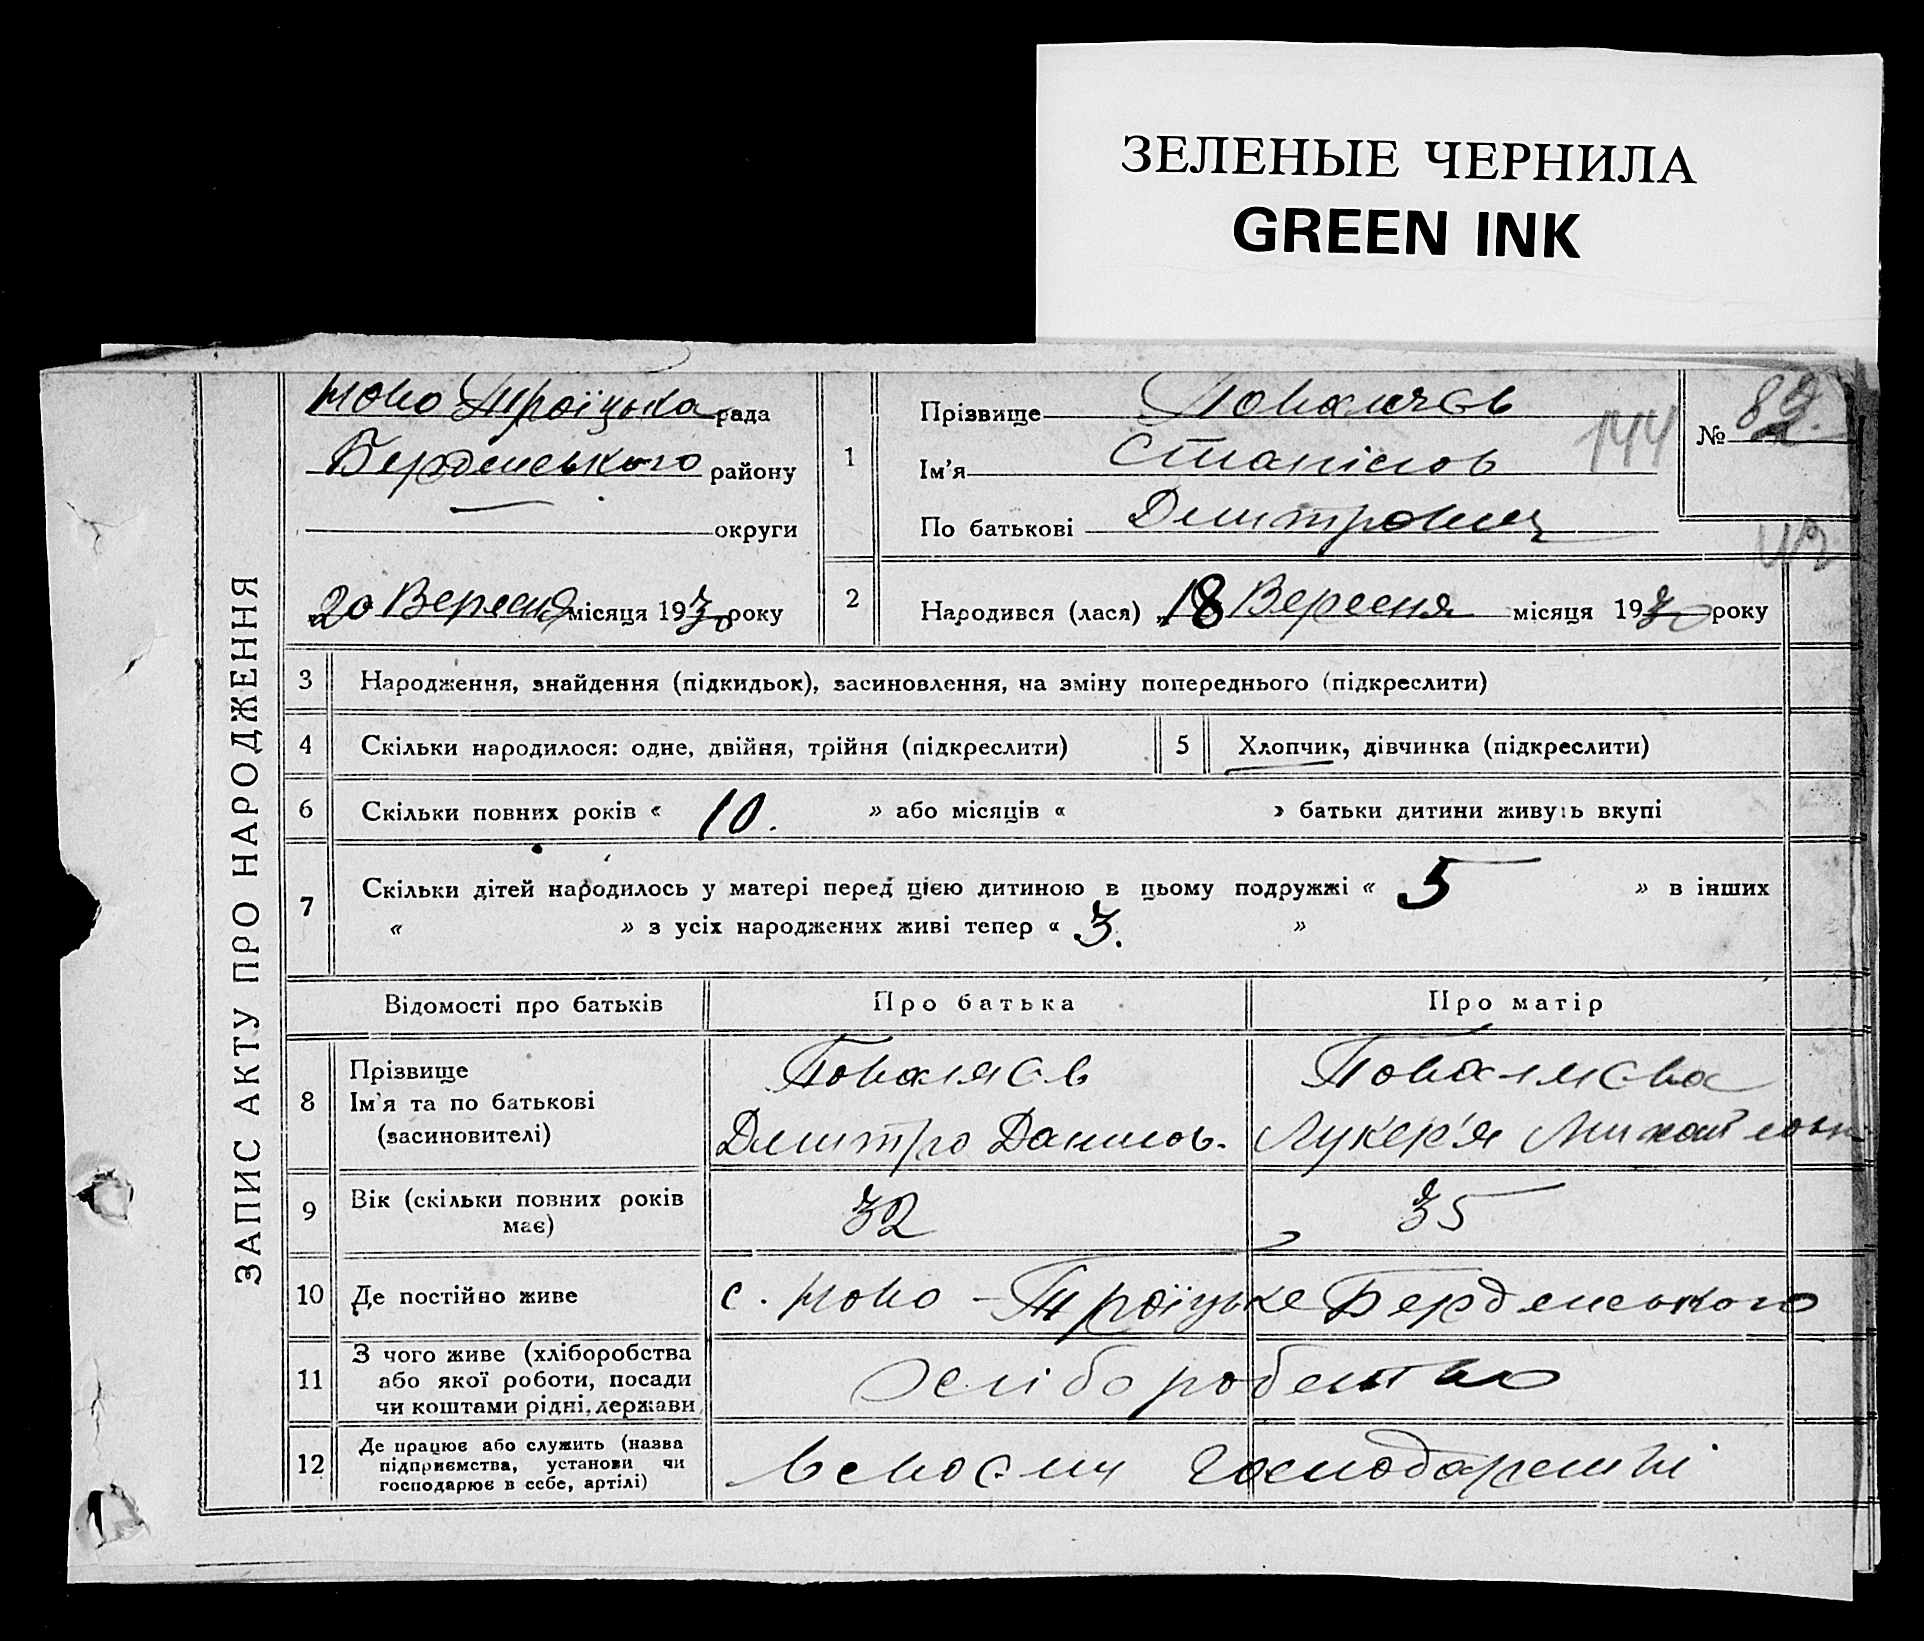 ЗЕЛЕНЫЕ ЧЕРНИЛА
GREEN INK
ЗАПИС АКТУ ПРО НАРОДЖЕННЯ
Ново Троїцька рада
Берденського району
округи
20 Вересня місяця 1930 року
1
Прізвище
Ім'я Станіслов
По батькові Дмитрович
144
№ 82.
2
Народився (лася) 18 Вересня місяця 1930 року
3 Народження, знайдення (підкидьок), засиновлення, на зміну попереднього (підкреслити)
4 Скільки народилося: одне, двійня, трійня (підкреслити) 5 Хлопчик, дівчинка (підкреслити)
6 Скільки повних років « 10. » або місяців « » батьки дитини живуть вкупі
7 Скільки дітей народилось у матері перед цією дитиною в цьому подружжі « 5 » в інших
« » з усіх народжених живі тепер « 3. »
Відомості про батьків Про батька Про матір
8 Прізвище Поваляєв Поваляєва
Ім'я та по батькові
(засиновителі) Дмитро Данилов. Лукер'я Михайловн
9 Вік (скільки повних років
має) 32 35
10 Де постійно живе с. Ново-Троїцьке Берденського
11 З чого живе (хліборобства
або якої роботи, посади
чи коштами рідні, держави хліборобство
12 Де працює або служить (назва
підприємства, установи чи
господарює в себе, артілі) всвоєму господарстві